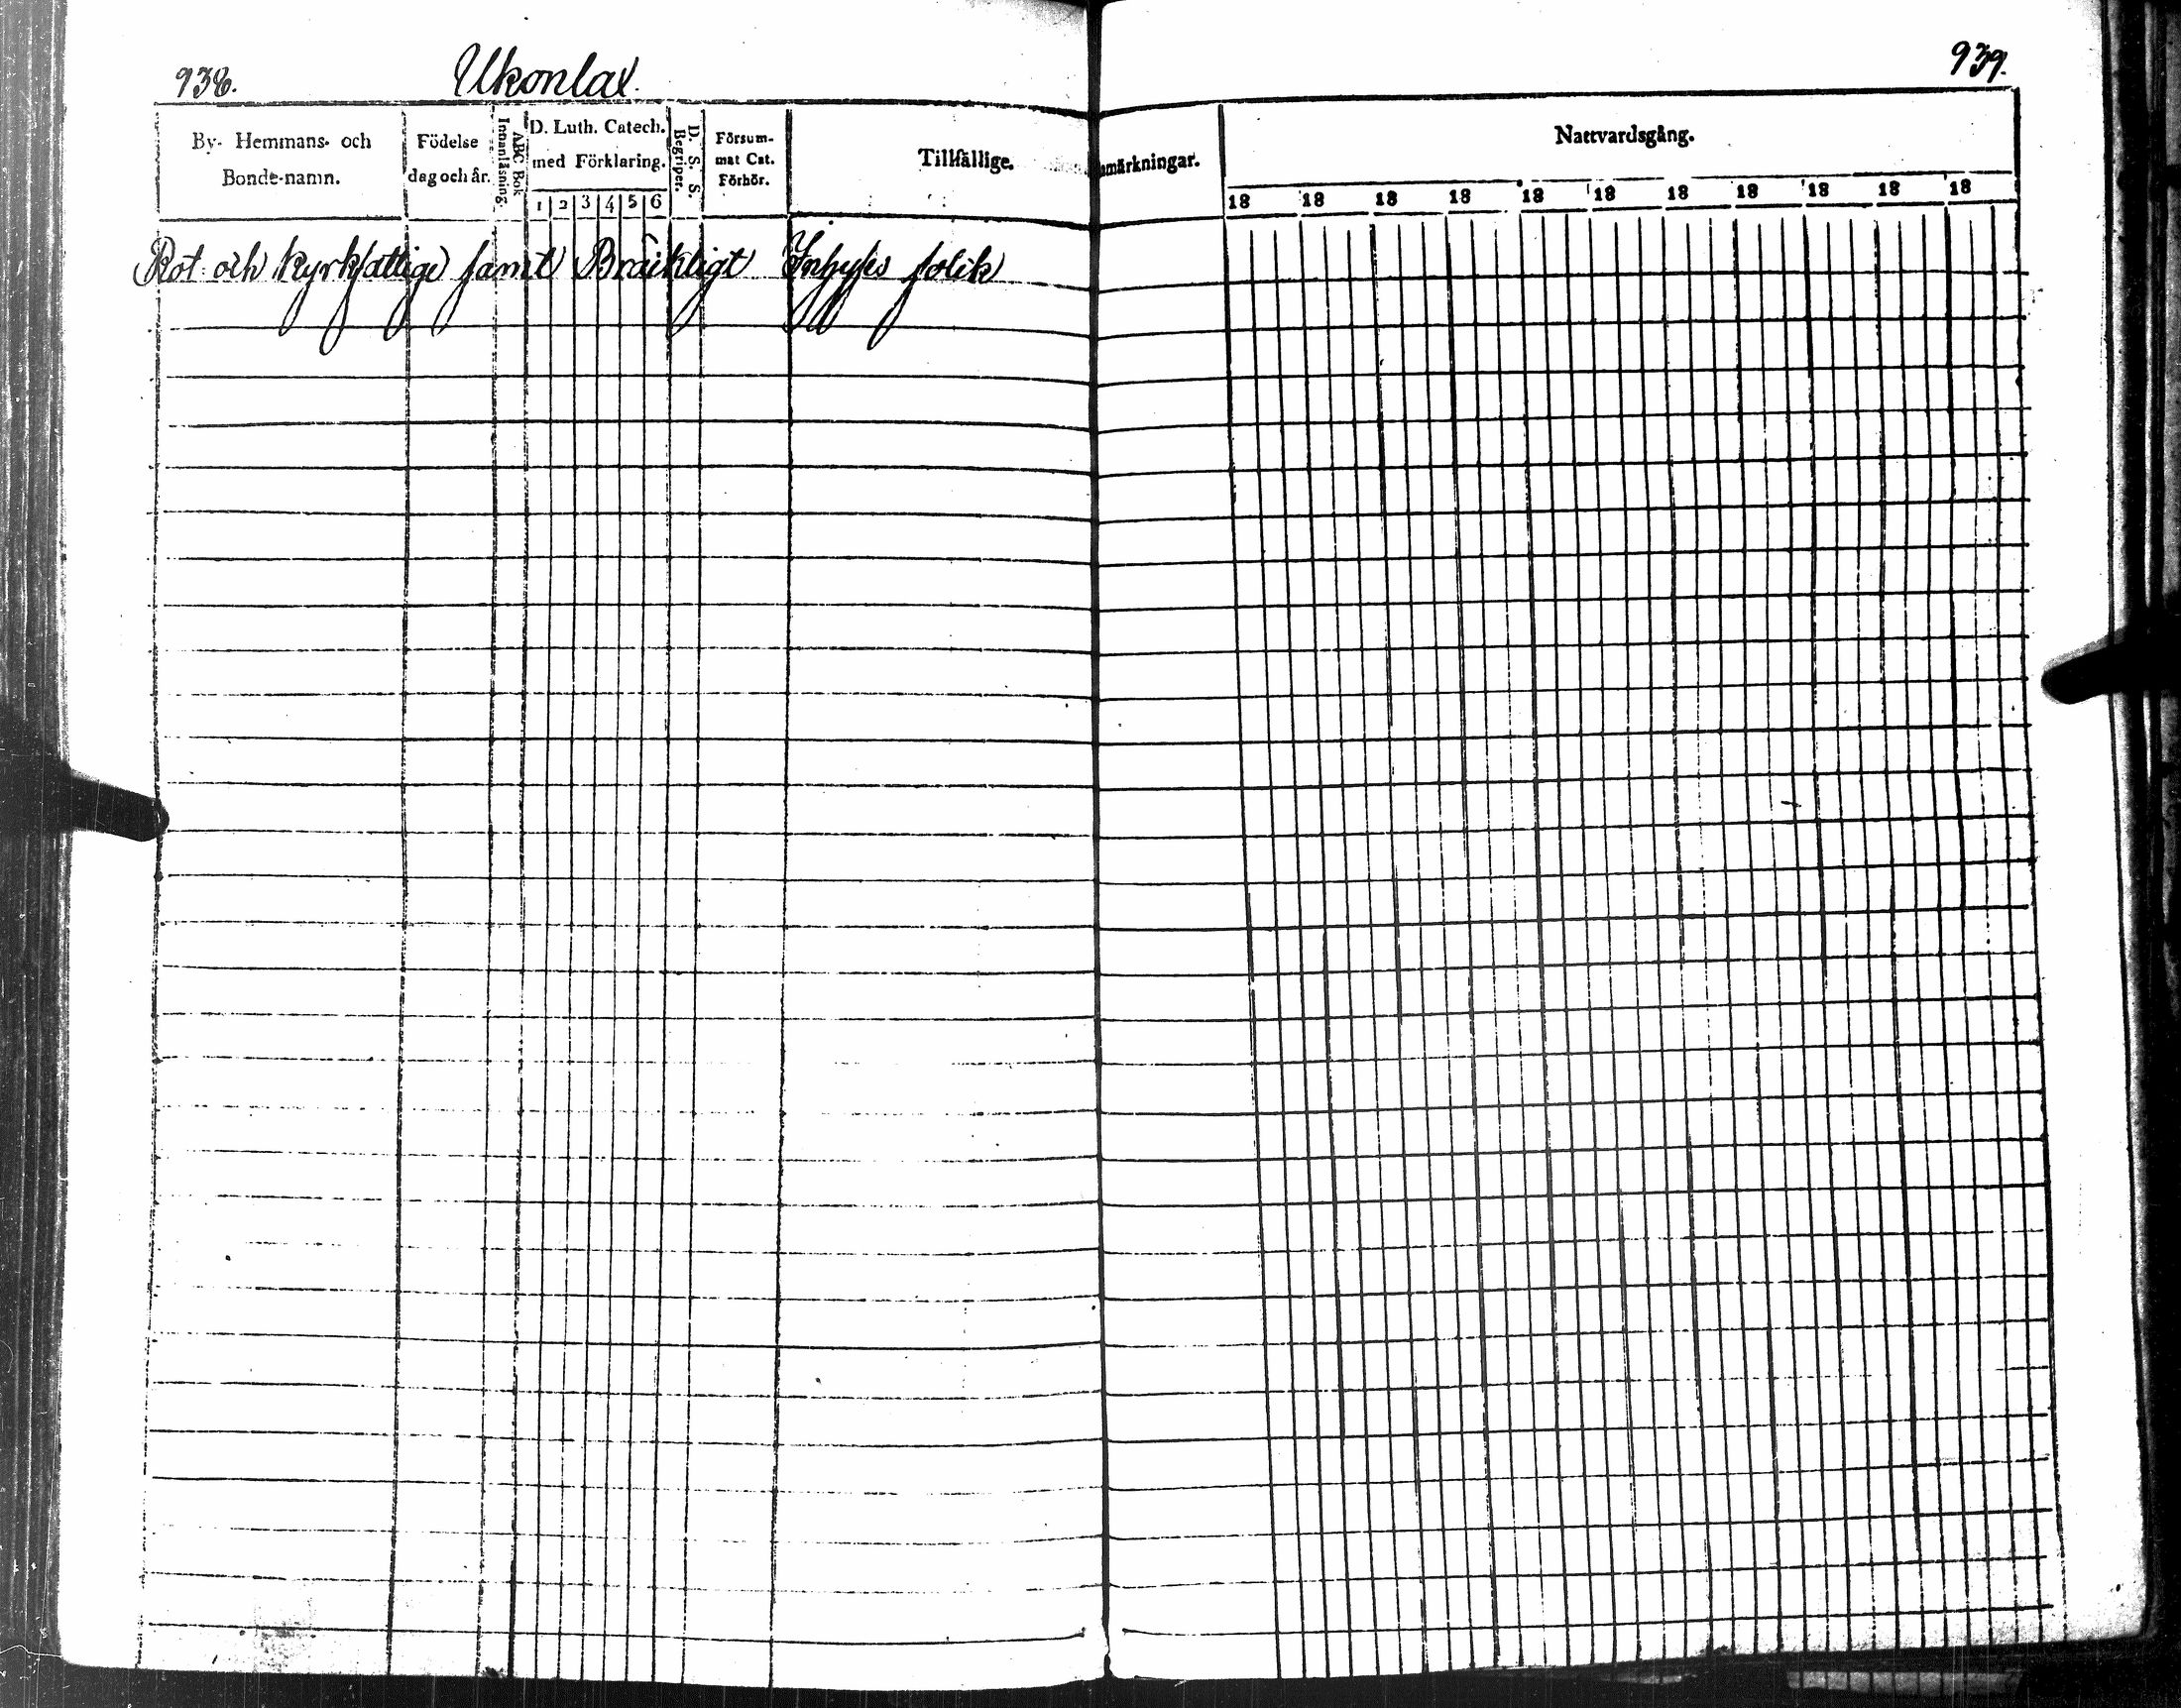 938.
Ukonlax.
939.
By- Hemmans- och
Bonde-namn.
Födelse
dag och år.
ABC Bok
Innanläsning.
D. Luth. Catech.
med Förklaring.
1 2 3 4 5 6
D. S. S.
Begriper.
Försum-
mat Cat.
Förhör.
Tillfällige
märkningar.
Nattvardsgång.
18 18 18 18 18 18 18 18 18 18 18
Rot och kyrkfattige samt Bräckligt Inhyses folk